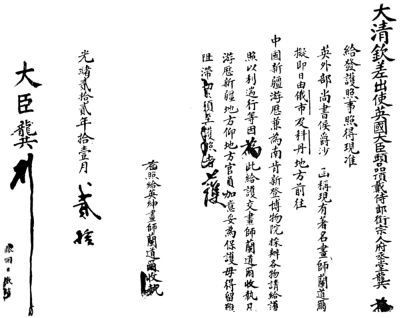 大清欽差出使英國大臣頭品頂戴侍郎銜宗人府府丞龔 為
給發護照事照得現准
英外部尚書侯爵沙 函稱現有著名畫師蘭道爾
擬即日由俄市及拜丹地方前往
中國新疆游歷兼為南肯新登博物院採辦各物請給護
照以利遄行等因為此給護交畫師蘭道爾收執凡
游歷新疆地方仰地方官員加應妥為保護毋得留難
阻滯 須至護照者 護
右照給英紳畫師蘭道爾收執
光緒貳拾貳年拾壹月 貳拾
大臣龔
繳